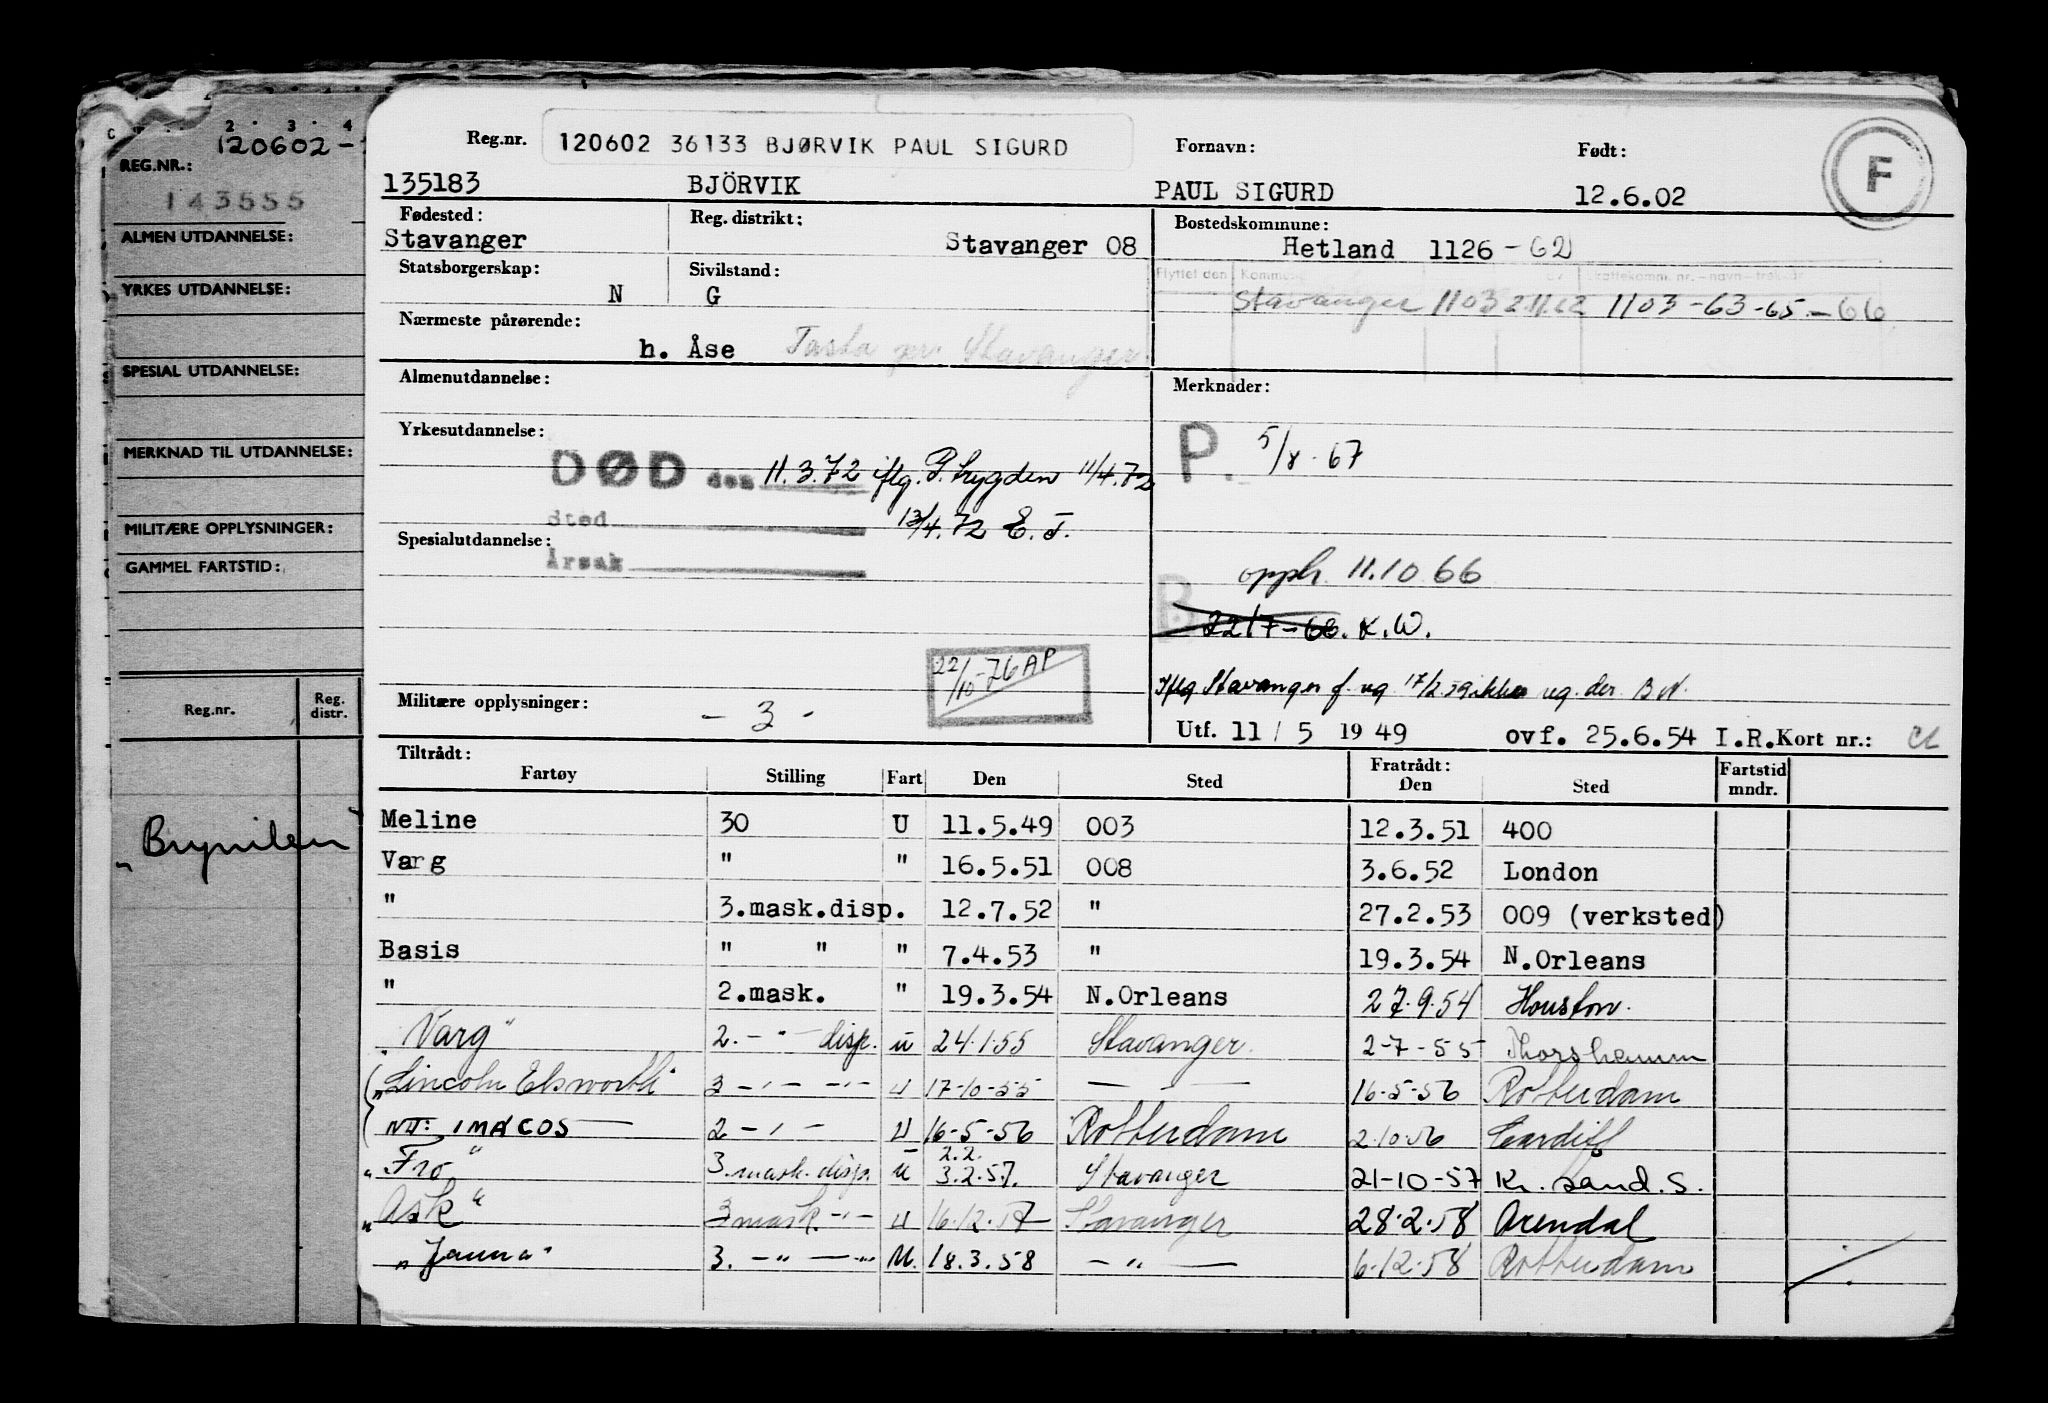 C 2 3 4
120602-
REG.NR.:
143555
ALMEN UTDANNELSE:
YRKES UTDANNELSE:
SPESIAL UTDANNELSE:
MERKNAD TIL UTDANNELSE:
MILITÆRE OPPLYSNINGER:
GAMMEL FARTSTID:
Reg.nr. Reg. distr.
Reg.nr. 120602 36133 BJØRVIK PAUL SIGURD Fornavn: Født: F
135183 BJÖRVIK PAUL SIGURD 12.6.02
Fødested: Reg. distrikt: Bostedskommune:
Stavanger Stavanger 08 Hetland 1126 - 62
Statsborgerskap: Sivilstand: Flyttet den Kommune Skattekomm. nr.-navn-trekkår
N G Stavanger 1103 2.11.62 1103-63-65-66
Nærmeste pårørende:
h. Åse Tasta pr. Stavanger
Almenutdannelse: Merknader:
Yrkesutdannelse: P. 5/8-67
DØD den 11.3.72 iflg. P. trygden 11/4.72
Sted 13/4.72 E.T.
Spesialutdannelse:
Årsak
opph. 11.10.66
B 22/7-66. K.W.
22/10-76 AP
Iflg Stavanger f. reg 17/2.59 ikke reg. der. B.N.
Militære opplysninger: - 3 -
Utf. 11 / 5 1949 ovf. 25.6.54 I.R. Kort nr.:
Tiltrådt: Fratrådt:
Fartøy Stilling Fart Den Sted Den Sted Fartstid mndr.
Meline 30 U 11.5.49 003 12.3.51 400
Varg " " 16.5.51 008 3.6.52 London
" 3.mask.disp. 12.7.52 " 27.2.53 009 (verksted)
Basis " " " 7.4.53 " 19.3.54 N.Orleans
" 2.mask. " 19.3.54 N.Orleans 27.9.54 Houston.
"Varg" 2. - " - disp. u 24.1.55 Stavanger. 2-7-55 Thorshamn
"Lincoln Elsworth" 3 - " - - " - u 17-10-55 — — 16-5-56 Rotterdam
MT: IMACOS 2 - " - U 16-5-56 Rotterdam 2.10.56 Cardiff
2.2.
"Fro" 3. mask. disp. u 3.2.57. Stavanger 21-10-57 Kr. sand. S.
"Ask" 3 mask. - " - u 16.12.57 Stavanger 28.2.58 Arendal
"Janna" 3. - " - - " - U. 18.3.58 - " - 6.12.58 Rotterdam